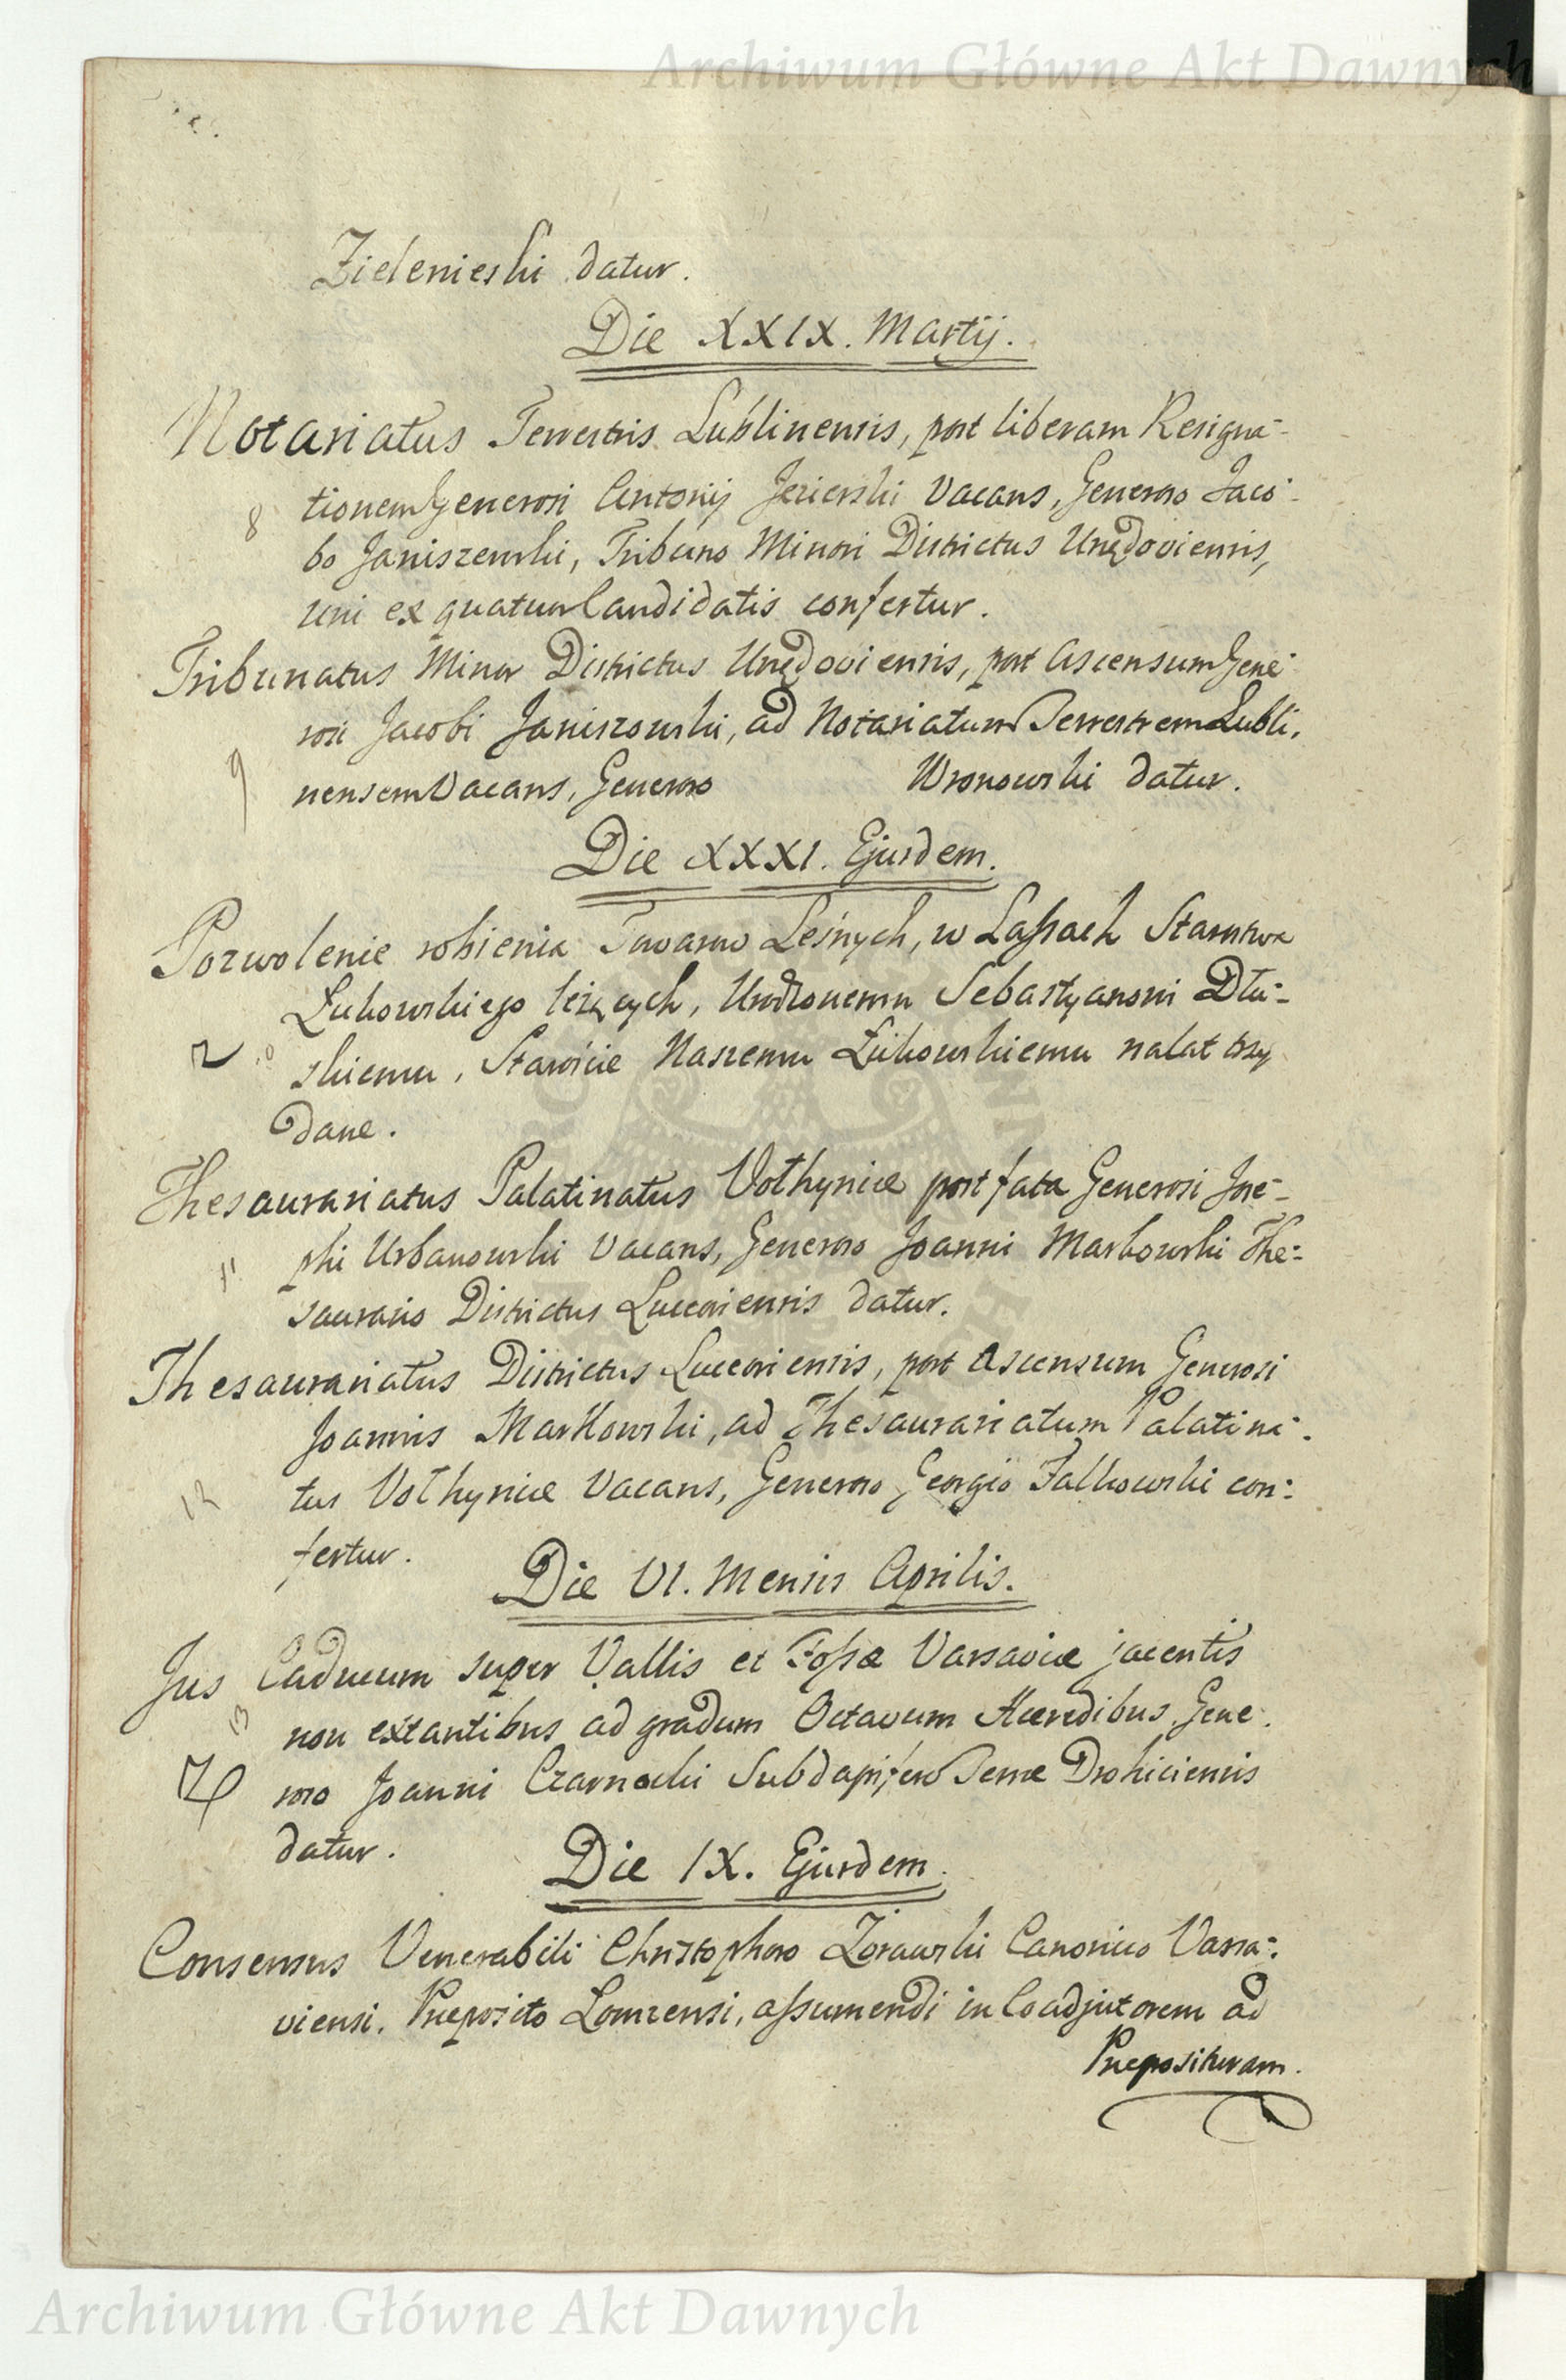 Archiwum Główne Akt Dawnych
Zielenieski datur.
Die XXIX. Martij.
Notariatus Terrestris Lublinensis, post liberam Resigna-
8 tionem Generosi Antonij Jezierski Vacans, Generoso Jaco-
bo Janiszewski, Tribuno Minori Districtus Urzędoviensis,
uni ex quatuor Candidatis confertur.
Tribunatus Minor Districtus Urzędoviensis, post Ascensum Gene-
rosi Jacobi Janiszowski, ad Notariatum Terrestrem Lubli,
9 nensem Vacans, Generoso Wronowski datur.
Die XXXI. Ejusdem.
Pozwolenie robienia Towarow Leśnych, w Lassach Starostwa
Łukowskiego leżących, Urodzonemu Sebastyanowi Dłu-
10 skiemu, Staroście Naszemu Łukowskiemu na lat trzy
dane.
Thesaurariatus Palatinatus Volhyniæ post fata Generosi Jose-
11 phi Urbanowski Vacans, Generoso Joanni Markowski The-
saurario Districtus Luceoriensis datur.
Thesaurariatus Districtus Luceoriensis, post Ascensum Generosi
Joannis Markowski, ad Thesaurariatum Palatina-
12 tus Volhyniæ Vacans, Generoso Georgio Falkowski con-
fertur.
Die VI. Mensis Aprilis.
Jus Caducum super Vallis et Fossæ Varsaviæ jacentis
13 non extantibus ad gradum Octavum Hæredibus, Gene-
roso Joanni Czarnocki Subdapifero Terræ Drohiciensis
datur.
Die IX. Ejusdem.
Consensus Venerabili Christophoro Żorawski Canonico Varsa-
viensi. Præposito Lomzensi, assumendi in Coadjutorem ad
Præposituram.
Archiwum Główne Akt Dawnych